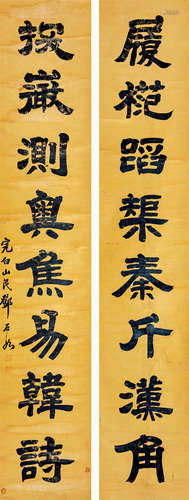 履榿蹈榘秦斤漢角
掇嶶測奧焦易韓詩
完白山民鄧石如